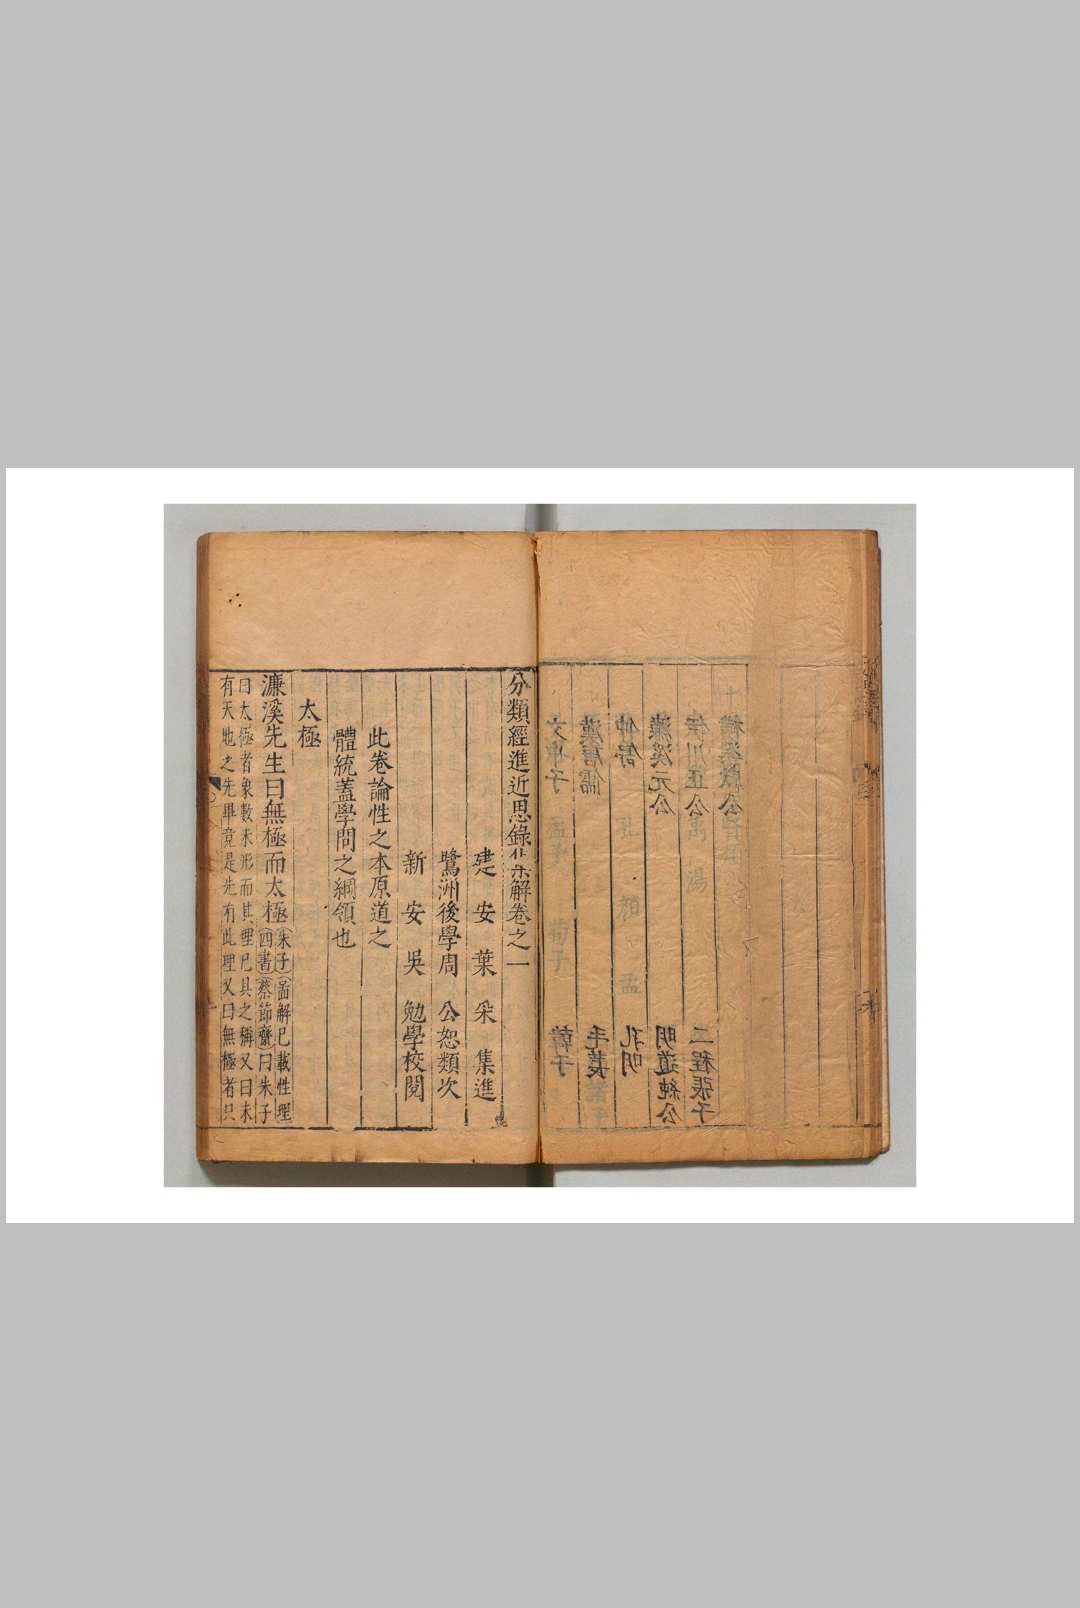 分類經進近思錄集解卷之一
建安葉采集進
鷺洲後學周公恕類次
新安吳勉學校閱
此卷論性之本原道之
體統蓋學問之綱領也
太極
濂溪先生曰無極而太極
朱子圖解已載性理
四書蔡節齋曰朱子
曰太極者象數未形而其理已具之稱又曰未
有天地之先畢竟是先有此理又曰無極者只
二程張子
橫渠獻公
伊川正公
明道純公
濂溪元公
孔明
仲舒
毛萇
漢唐儒
韓子
文中子